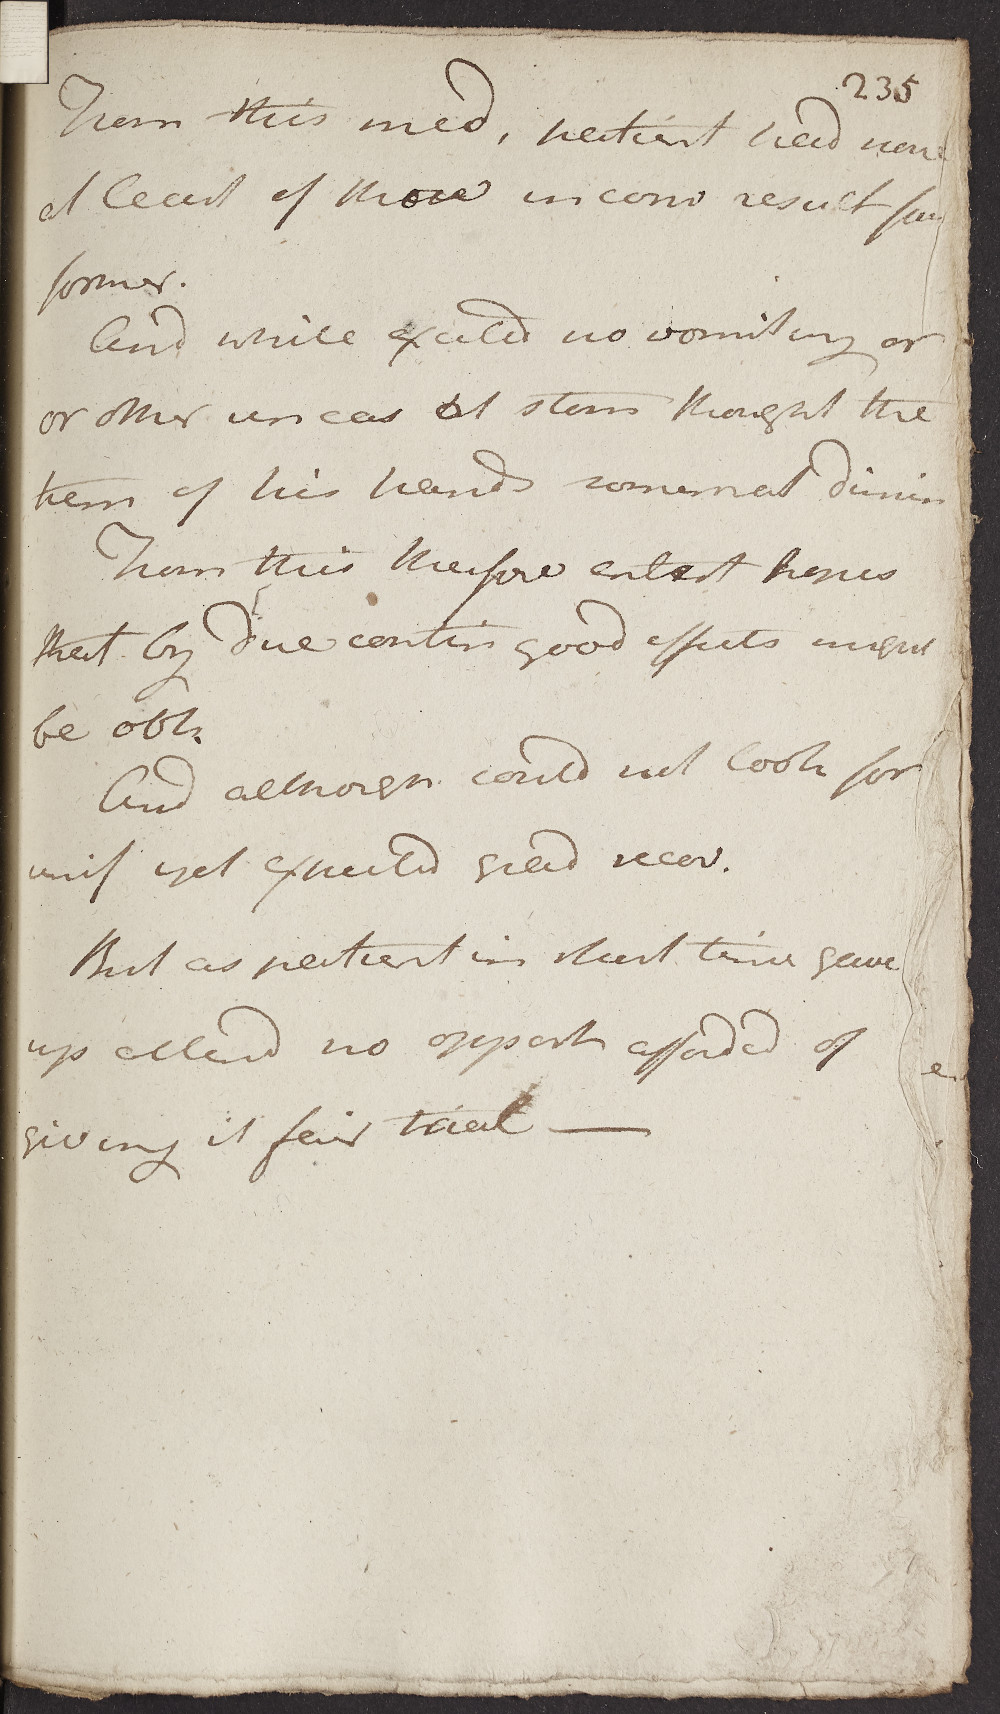 235
From this med, patient had none
at least of those inconv result from
former.
And while excited no vomiting or
or other uneas at stom thought the
trem of his hands somewhat dimin
From this therefore entert hopes
that by due contin good effects might
be obt.
And although could not look for
unif yet expected grad recov.
But as patient in short time gave
up attend no opport afforded of
giving it fair trial —